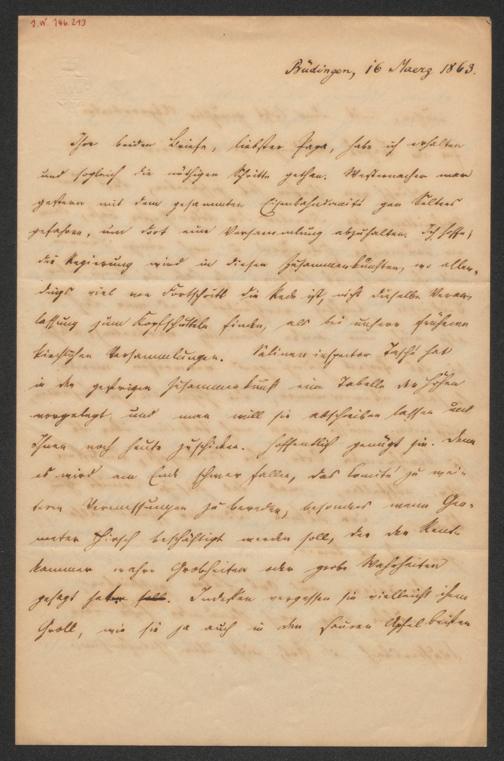 I.N. 146.213
Büdingen, 16 Maerz 1863.
Ihre beiden Briefe, liebster Papa, habe ich erhalten
und sogleich die nöthigen Schritte gethan. Westernacher war
gestern mit dem gesammten Eisenbahncomité gen Selters
gefahren, um dort eine Versammlung abzuhalten. Ich hoffe,
die Regierung wird in diesen Zusammenkünften, wo aller-
dings viel von Fortschritt die Rede ist, nicht dieselbe Veran-
lassung zum Kopfschütteln finden, als bei unsern früheren
kirchlichen Versammlungen. Salineninspector Tasché hat
in der gestrigen Zusammenkunft eine Tabelle der Höhen
vorgelegt und man will sie abschreiben lassen und
Ihnen noch heute zuschicken. Hoffentlich genügt sie. Denn
es wird am Ende schwer fallen, das Comité zu wei-
teren Vermessungen zu bereden, besonders wenn Geo-
meter Hirsch beschäftigt werden soll, der der Rent-
kammer wahre Grobheiten oder grobe Wahrheiten
gesagt hat. Indessen vergessen sie vielleicht ihren
Groll, wie sie ja auch in den sauren Apfel beißen